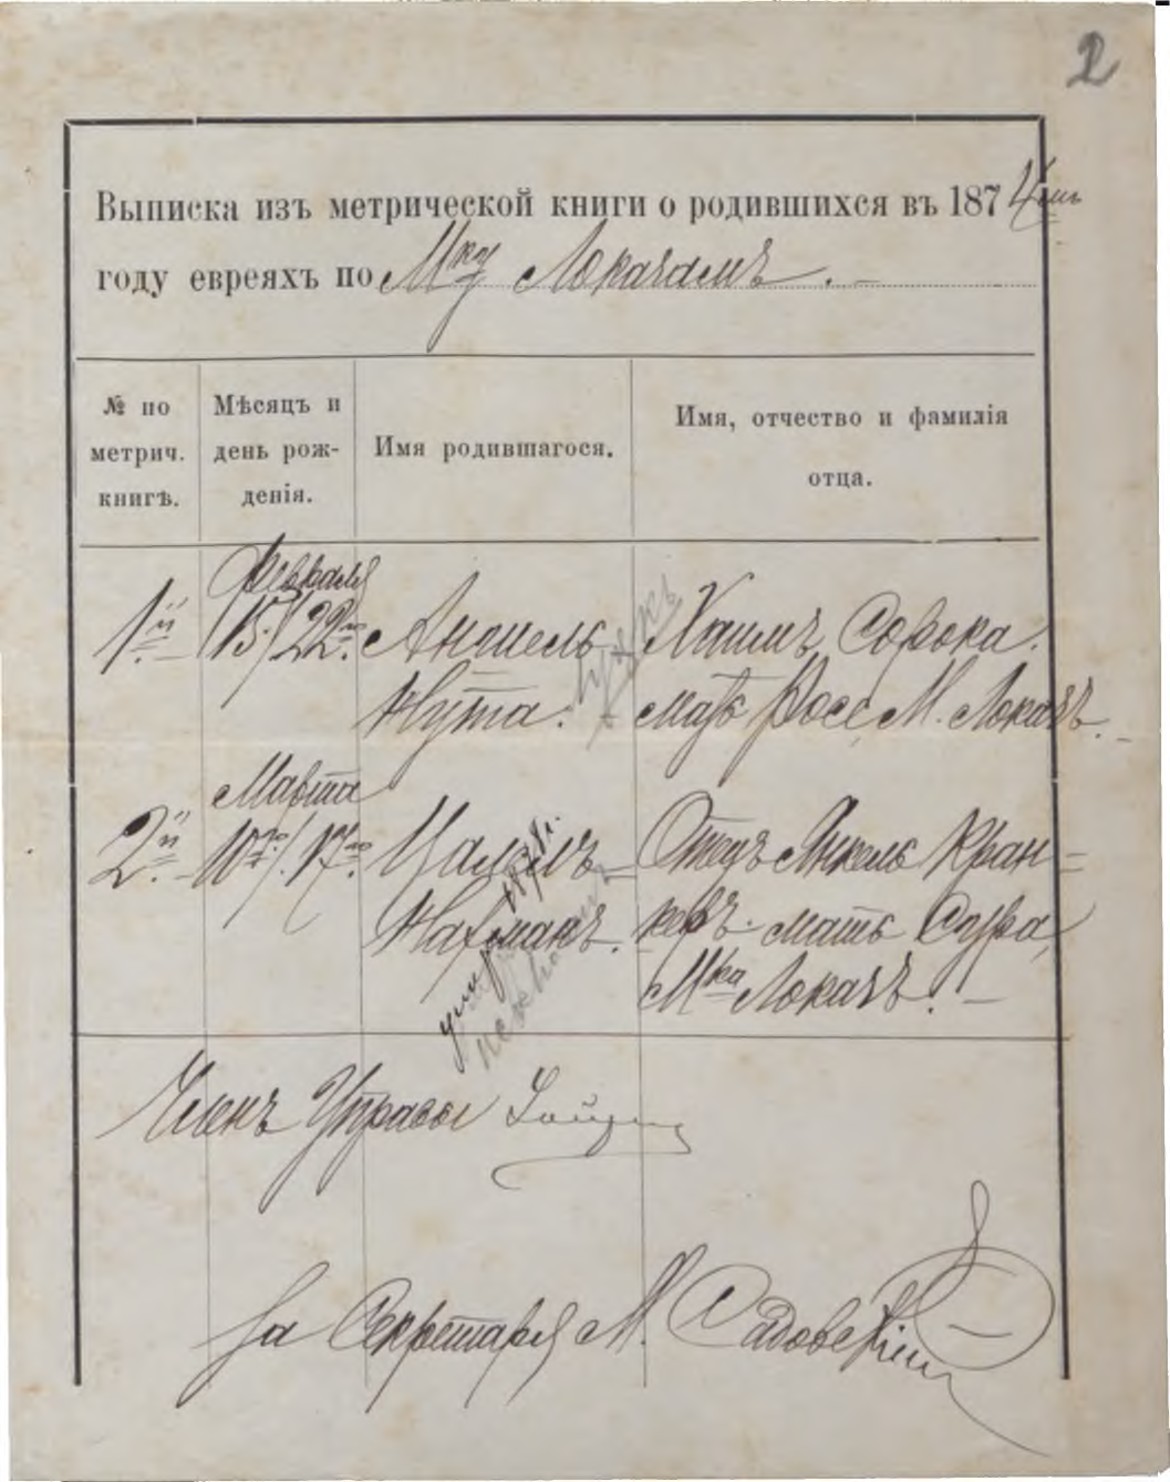 2
Выписка изъ метрической книги о родившихся въ 1874мъ
году евреяхъ по Мку Локачамъ.
№ по метрич. книгѣ.
Мѣсяцъ и день рож-
денія.
Имя родившагося.
Имя, отчество и фамилія
отца.
Февраля
1й 15/22го Аншель Хаимъ Сорока.
Нута. мать Росс, М. Локачъ.
Марта
2й 10го/17го Отецъ Янкель Кран-
Нахманъ. керъ. мать Сура,
Мка Локачъ.
умеръ
Членъ Управы
За Секретаря М. Садовскій